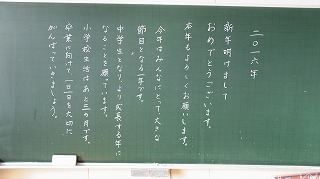 二〇一六年
新年明けまして
おめでとうございます。
本年もよろしくお願いします。
今年はみんなにとって大きな
節目となる一年です。
中学生となり、より成長する年に
なることを願っています。
小学校生活はあと三か月です。
卒業に向けて一日一日を大切に
がんばっていきましょう。